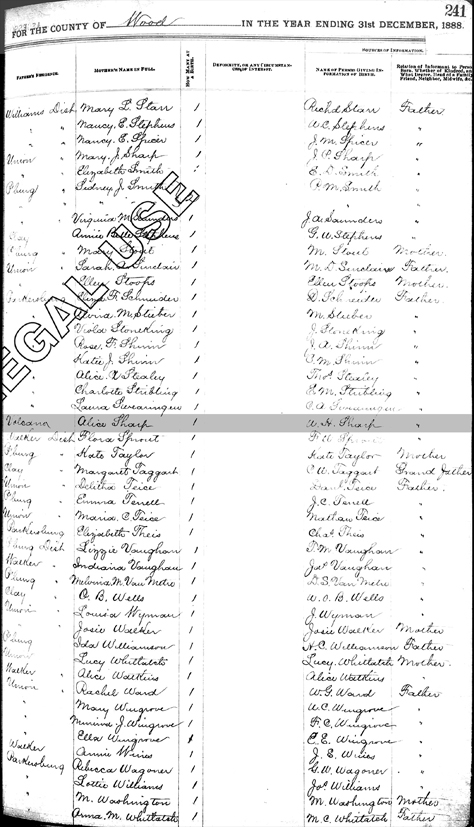 241
FOR THE COUNTY OF Wood IN THE YEAR ENDING 31st DECEMBER, 1888.
SOURCES OF INFORMATION.
FATHER'S RESIDENCE. MOTHER'S NAME IN FULL. HOW MANY AT BIRTH. DEFORMITY, OR ANY CIRCUMSTANCE OF INTEREST. NAME OF PERSON GIVING INFORMATION OF BIRTH. Relation of Informant to Person
Williams Dist Mary L. Starr 1 Richd Starr Father
" " Nancy E. Stephens 1 W C. Stephens "
" " Nancy E. Spicer 1 J. M. Spicer "
Union " Mary J. Sharp 1 J. P. Sharp "
" " Elizabeth Smith E. D. Smith "
" Sidney J. Smith 1 P. M. Smith "
Virginia M. Saunders 1 J A Saunders "
Clay Annie Belle Stephens 1 G. W. Stephens "
Mary Stout 1 M. Stout Mother
Union " Sarah A Sinclair 1 M. D. Sinclair Father
Ellen Stoops 1 Ellen Stoops Mother
Schneider 1 D. Schneider Father
M. Stieber 1 M. Stieber "
Viola Stoneking 1 J. Stoneking "
Rose F. Shinn 1 J. A. Shinn "
Katie J. Shinn 1 Shinn "
Alice V Stealey 1 Thos Stealey "
Charlotte Stribling 1 Stribling "
Laura Swearingen 1 Swearingen "
Volcano Alice Sharp 1 W. H. Sharp "
Walker Dist Flora Sprout 1 Sprout "
" Kate Taylor 1 Kate Taylor Mother
Clay " Margaret Taggart 1 C. W. Taggart Grand father
Union " Teice 1 Teice Father
" Emma Terrell 1 J. C. Terrell "
Union " Maria C. Teice 1 Nathan Teice "
Parkersburg Elizabeth Theis 1 Chas. Theis "
Dist Lizzie Vaughan 1 P. M. Vaughan "
Walker " Indiana Vaughan 1 Jas Vaughan "
" Melvina M. Van Metre 1 D. S. Van Metre "
Clay " C. B. Wells 1 W. O. B. Wells "
Union " Louisa Wyman 1 J. Wyman "
" Josie Walker 1 Josie Walker Mother
" Ida Williamson 1 H. C. Williamson Father
Union " Lucy Whittatch 1 Lucy Whittatch Mother
Walker " Alice Watkins 1 Alice Watkins "
Union " Rachel Ward 1 W. G. Ward Father
" Mary Wingrove 1 W C. Wingrove "
" J. Wingrove 1 F. C. Wingrove "
" Ella Wingrove 1 C. E. Wingrove "
Walker " Annie Wines 1 J. E. Wines "
Parkersburg Rebecca Wagoner 1 G. W. Wagoner "
" Lottie Williams 1 Jos Williams "
" M. Washington 1 M. Washington Mother
" Anna. M. Whittatch 1 M. C. Whittatch Father
EGAL USE